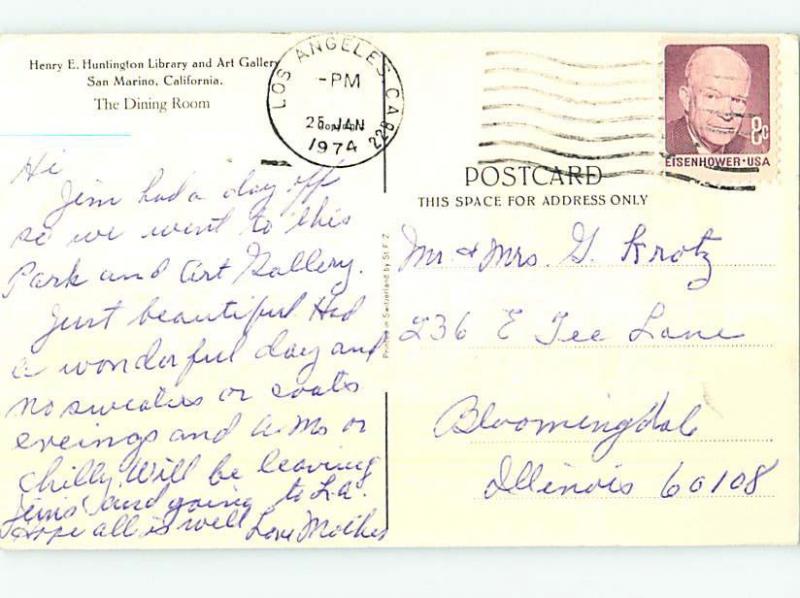 Henry E. Huntington Library and Art Gallery
San Marino, California.
The Dining Room
LOS ANGELES, CA
-PM
25 JAN
1974
228
EISENHOWER·USA
8c
POSTCARD
THIS SPACE FOR ADDRESS ONLY
Printed in Switzerland by St F Z
Hi
Jim had a day off
so we went to this
Park and Art Gallery.
Just beautiful Had
a wonderful day and
no sweaters or coats
eveings and A.Ms or
chilly. Will be leaving
Jims and going to L.A.
Hope all is well Love Mother
Mr & Mrs. G. Krotz
236 E Tee Lane
Bloomingdale
Illinois 60108